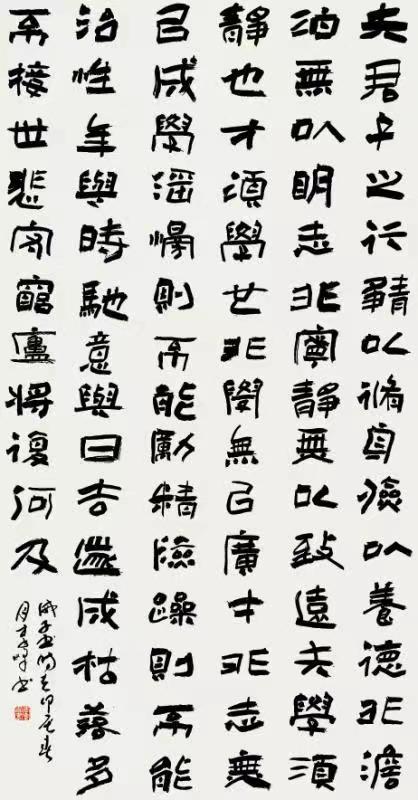 夫君子之行靜以脩身儉以養德非澹
泊無以明志非寧靜無以致遠夫學須
靜也才須學也非學無以廣才非志無
以成學滔慢則不能勵精險躁則不能
治性年與時馳意與日去遂成枯落多
不接世悲守窮廬將復何及